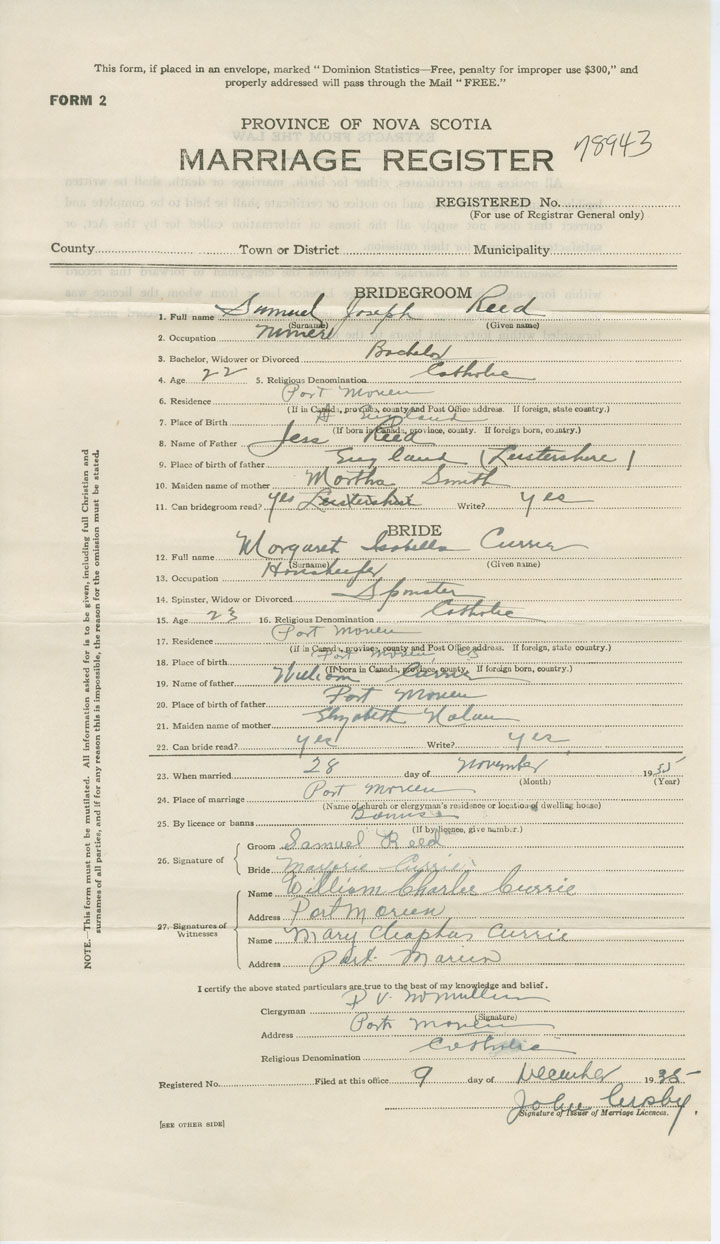 This form, if placed in an envelope, marked "Dominion Statistics—Free, penalty for improper use $300," and
properly addressed will pass through the Mail "FREE."
FORM 2
PROVINCE OF NOVA SCOTIA
MARRIAGE REGISTER 78943
REGISTERED No.
(For use of Registrar General only)
County Town or District Municipality
BRIDEGROOM
1. Full name Samuel Joseph Reed
(Surname) (Given name)
2. Occupation Miner
3. Bachelor, Widower or Divorced Bachelor
4. Age 22 5. Religious Denomination Catholic
6. Residence Port Morien
(If in Canada, province, county and Post Office address. If foreign, state country.)
7. Place of Birth England
(If born in Canada, province, county. If foreign born, country.)
8. Name of Father Jess Reed
9. Place of birth of father England (Leistershire)
10. Maiden name of mother Martha Smith
11. Can bridegroom read? yes Leistershire Write? yes
BRIDE
12. Full name Margaret Isabella Currie
(Surname) (Given name)
13. Occupation Housekeeper
14. Spinster, Widow or Divorced Spinster
15. Age 23 16. Religious Denomination Catholic
17. Residence Port Morien
(If in Canada, province, county and Post Office address. If foreign, state country.)
18. Place of birth Port Morien
(If born in Canada, province, county. If foreign born, country.)
19. Name of father William Currie
20. Place of birth of father Port Morien
21. Maiden name of mother Elizabeth Nolan
22. Can bride read? yes Write? yes
23. When married 28 day of November 1935
(Month) (Year)
24. Place of marriage Port Morien
(Name of church or clergyman's residence or location of dwelling house)
25. By licence or banns Banns
(If by licence, give number.)
26. Signature of Groom Samuel Reed
Bride Marjorie Currie
27. Signatures of Witnesses
Name William Charlie Currie
Address Port Morien
Name Mary Currie
Address Port Morien
I certify the above stated particulars are true to the best of my knowledge and belief.
Clergyman McMullin
(Signature)
Address Port Morien
Religious Denomination Catholic
Registered No. Filed at this office 9 day of December 1935
John Cusby
Signature of Issuer of Marriage Licences.
[SEE OTHER SIDE]
NOTE.—This form must not be mutilated. All information asked for is to be given, including full Christian and
surnames of all parties, and if for any reason this is impossible, the reason for the omission must be stated.